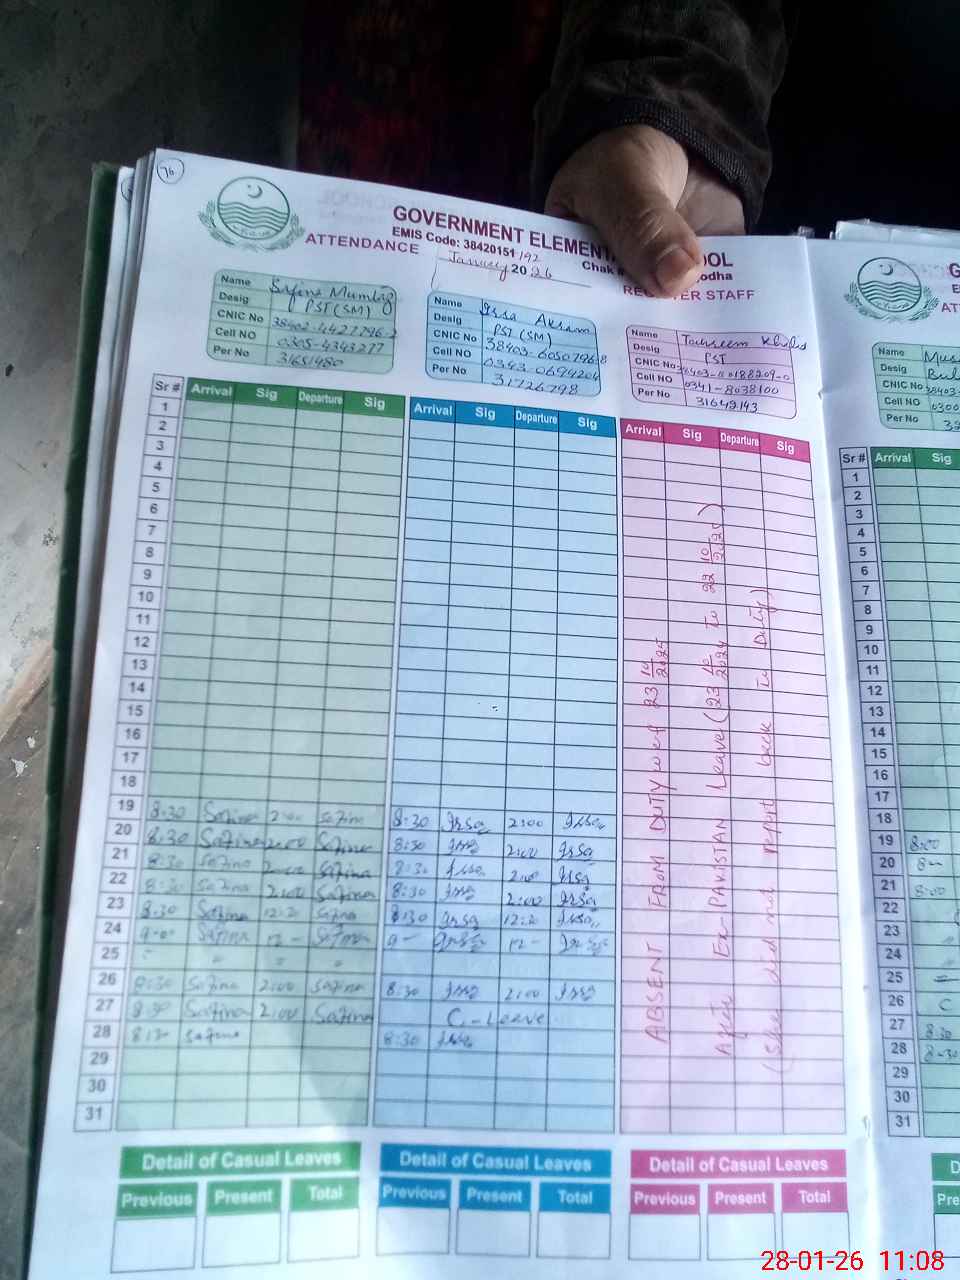 76
GOVERNMENT ELEMEN OOL
EMIS Code: 38420151/192 Chak # odha
ATTENDANCE January 2026 REG ER STAFF
Name Safina Mumtaz
Desig PST(SM)
CNIC No 38402-4427796-2
Cell NO 0305-4343277
Per No 31651480
Name Irsa Akram
Desig PST (SM)
CNIC No 38403-6050796-8
Cell NO 0343-0694204
Per No 31726798
Name Tasreem
Desig PST
CNIC No
Cell NO 0341-8038100
Per No 31642143
Sr # Arrival Sig Departure Sig Arrival Sig Departure Sig Arrival Sig Departure Sig
1
2
3
4
5
6
7
8
9
10
11
12
13
14
15
16
17
18
19 8:30 Safina 2:00 Safina 8:30 Irsa 2:00 Irsa
20 8:30 Safina 2:00 Safina 8:30 Irsa 2:00 Irsa
21 8:30 Safina 2:00 Safina 8:30 Irsa 2:00 Irsa
22 8:30 Safina 2:00 Safina 8:30 Irsa 2:00 Irsa
23 8:30 Safina 12:30 Safina 8:30 Irsa 12:30 Irsa
24 9:00 Safina 12- Safina 9- Irsa 12- Irsa
25 = = = =
26 8:30 Safina 2:00 Safina 8:30 Irsa 2:00 Irsa
27 8:30 Safina 2:00 Safina C-Leave
28 8:30 Safina 8:30 Irsa
29
30
31
ABSENT FROM DUTY w.e.f 23 10/2025
After Ex-PAKISTAN Leave (23 10/2024 to 22 10/2025)
(She did not report back to Duty)
Detail of Casual Leaves Detail of Casual Leaves Detail of Casual Leaves
Previous Present Total Previous Present Total Previous Present Total
G
E
AT
Name
Desig
CNIC No 38403-
Cell NO 0300
Per No
Sr # Arrival Sig
1
2
3
4
5
6
7
8
9
10
11
12
13
14
15
16
17
18
19 8:00
20 8-
21 8:00
22
23
24
25 =
26 C
27 8:30
28 8-30
29
30
31
D
Pre
28-01-26 11:08